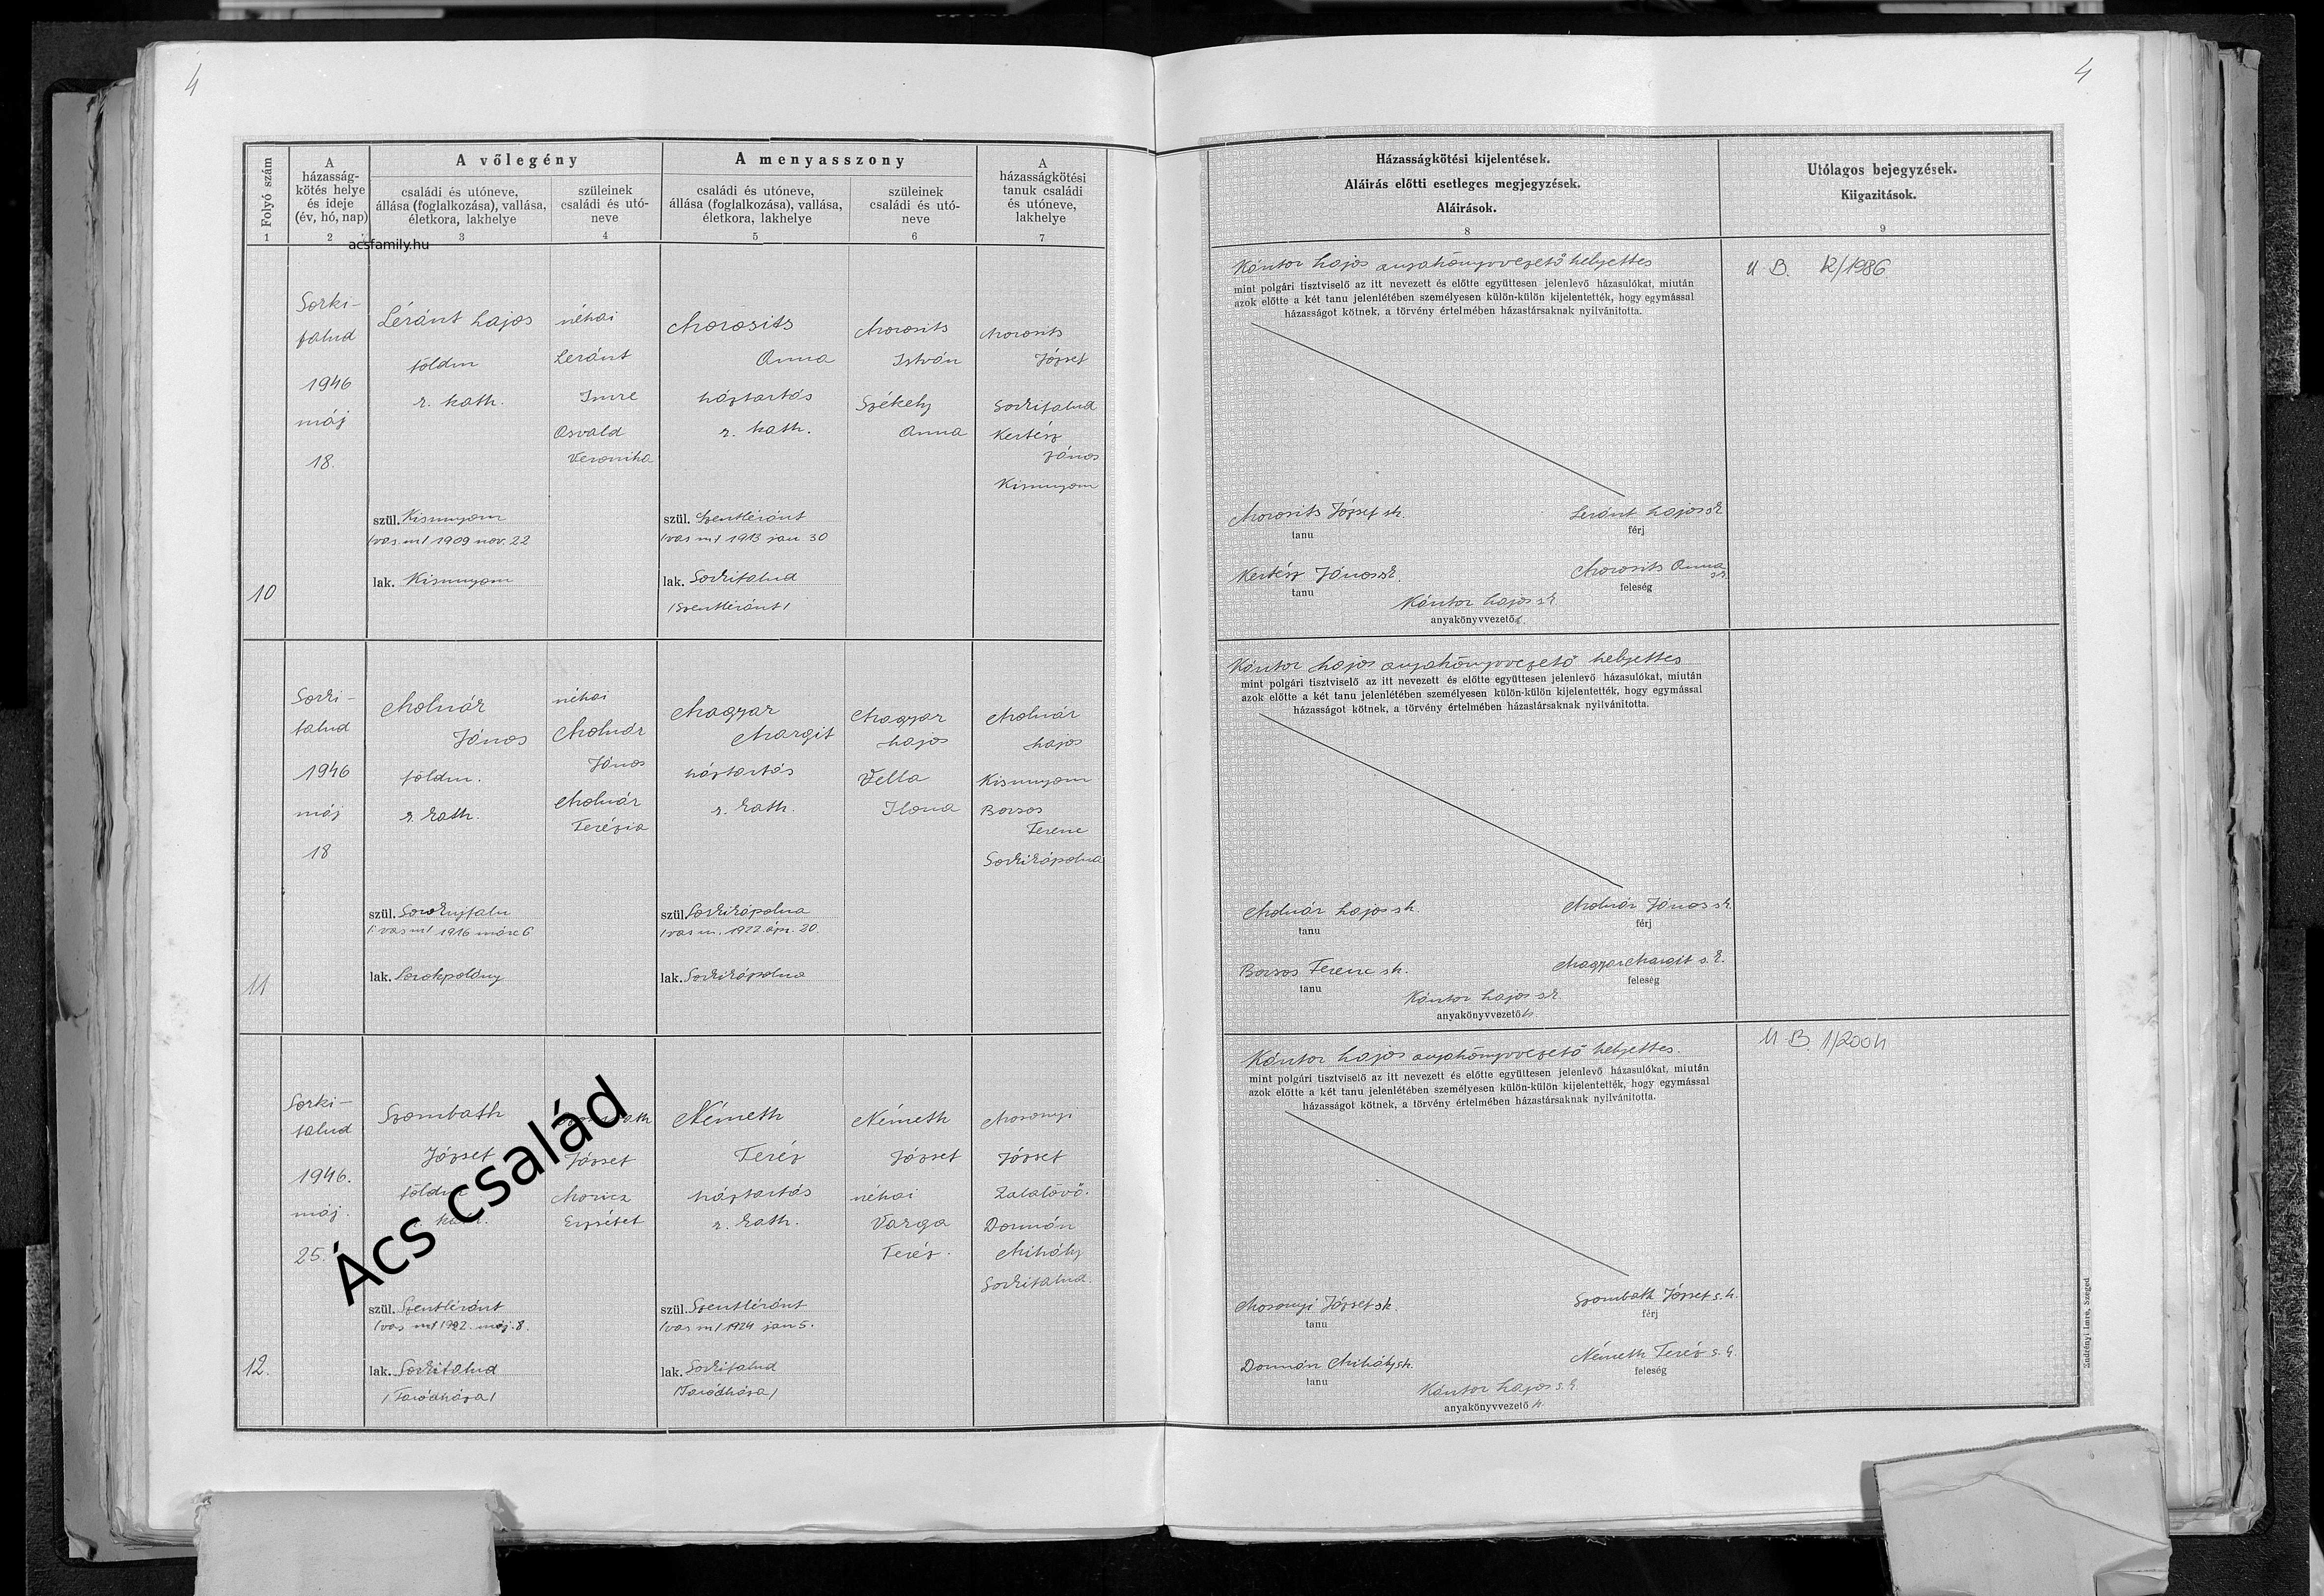 4
4
Folyó szám
1
A
házasság-
kötés helye
és ideje
(év, hó, nap)
2
A vőlegény
családi és utóneve,
állása (foglalkozása), vallása,
életkora, lakhelye
3
szüleinek
családi és utó-
neve
4
A menyasszony
családi és utóneve,
állása (foglalkozása), vallása,
életkora, lakhelye
5
szüleinek
családi és utó-
neve
6
A
házasságkötési
tanuk családi
és utóneve,
lakhelye
7
Házasságkötési kijelentések.
Aláírás előtti esetleges megjegyzések.
Aláírások.
8
Utólagos bejegyzések.
Kiigazitások.
9
acsfamily.hu
10
Sorki-
falud
1946
máj
18.
Léránt Lajos
földm
r. kath.
szül. Kisunyom
/vas m/ 1909 nov. 22
lak. Kisunyom
néhai
Leránt
Imre
Osvald
Veronika
Morosits
Anna
háztartás
r. kath.
szül. Szentléránt
/vas m/ 1913 jan 30
lak. Sorkifalud
/Szentléránt/
Morosits
István
Székely
Anna
Morosits
József
Sorkifalud
Kertész
János
Kisunyom
Kántor Lajos anyakönyvvezető helyettes
mint polgári tisztviselő az itt nevezett és előtte együttesen jelenlevő házasulókat, miután
azok előtte a két tanu jelenlétében személyesen külön-külön kijelentették, hogy egymással
házasságot kötnek, a törvény értelmében házastársaknak nyilvánitotta.
Morosits József sk.
tanu
Leránt Lajos sk
férj
Kertész János sk.
tanu
Morosits Anna
sk.
feleség
Kántor Lajos sk
anyakönyvvezető h.
U B. 12/1986
11
Sorki-
falud
1946
máj
18
Molnár
János
földm.
r. kath.
szül. Sorokujfalu
/vas m/ 1916 márc 6
lak. Sorokpolány
néhai
Molnár
János
Molnár
Terézia
Magyar
Margit
háztartás
r. kath.
szül. Sorkikápolna
/vas m. 1922. ápr. 20.
lak. Sorkikápolna
Magyar
Lajos
Vella
Ilona
Molnár
Lajos
Kisunyom
Borsos
Ferenc
Sorkikápolna
Kántor Lajos anyakönyvvezető helyettes
mint polgári tisztviselő az itt nevezett és előtte együttesen jelenlevő házasulókat, miután
azok előtte a két tanu jelenlétében személyesen külön-külön kijelentették, hogy egymással
házasságot kötnek, a törvény értelmében házastársaknak nyilvánitotta.
Molnár Lajos sk.
tanu
Molnár János sk.
férj
Borsos Ferenc sk.
tanu
Magyar Margit s.k.
feleség
Kántor Lajos sk
anyakönyvvezető h.
12.
Sorki-
falud
1946.
máj.
25.
Szombath
József
földm
kath.
szül. Szentléránt
/vas m/ 1922. máj. 8.
lak. Sorkifalud
/Taródháza/
József
Moricz
Erzsébet
Németh
Teréz
háztartás
r. kath.
szül. Szentléránt
/vas m/ 1924 jan 5.
lak. Sorkifalud
/Taródháza/
Németh
József
néhai
Varga
Teréz.
Mosonyi
József
Zalalövő.
Dormán
Mihály
Sorkifalud.
Kántor Lajos anyakönyvvezető helyettes.
mint polgári tisztviselő az itt nevezett és előtte együttesen jelenlevő házasulókat, miután
azok előtte a két tanu jelenlétében személyesen külön-külön kijelentették, hogy egymással
házasságot kötnek, a törvény értelmében házastársaknak nyilvánitotta.
Mosonyi József sk.
tanu
Szombath József s.k.
férj
Dormán Mihály sk.
tanu
Németh Teréz s.k.
feleség
Kántor Lajos s.k.
anyakönyvvezető h.
U B. 1/2004
Ács család
Endrényi Imre, Szeged